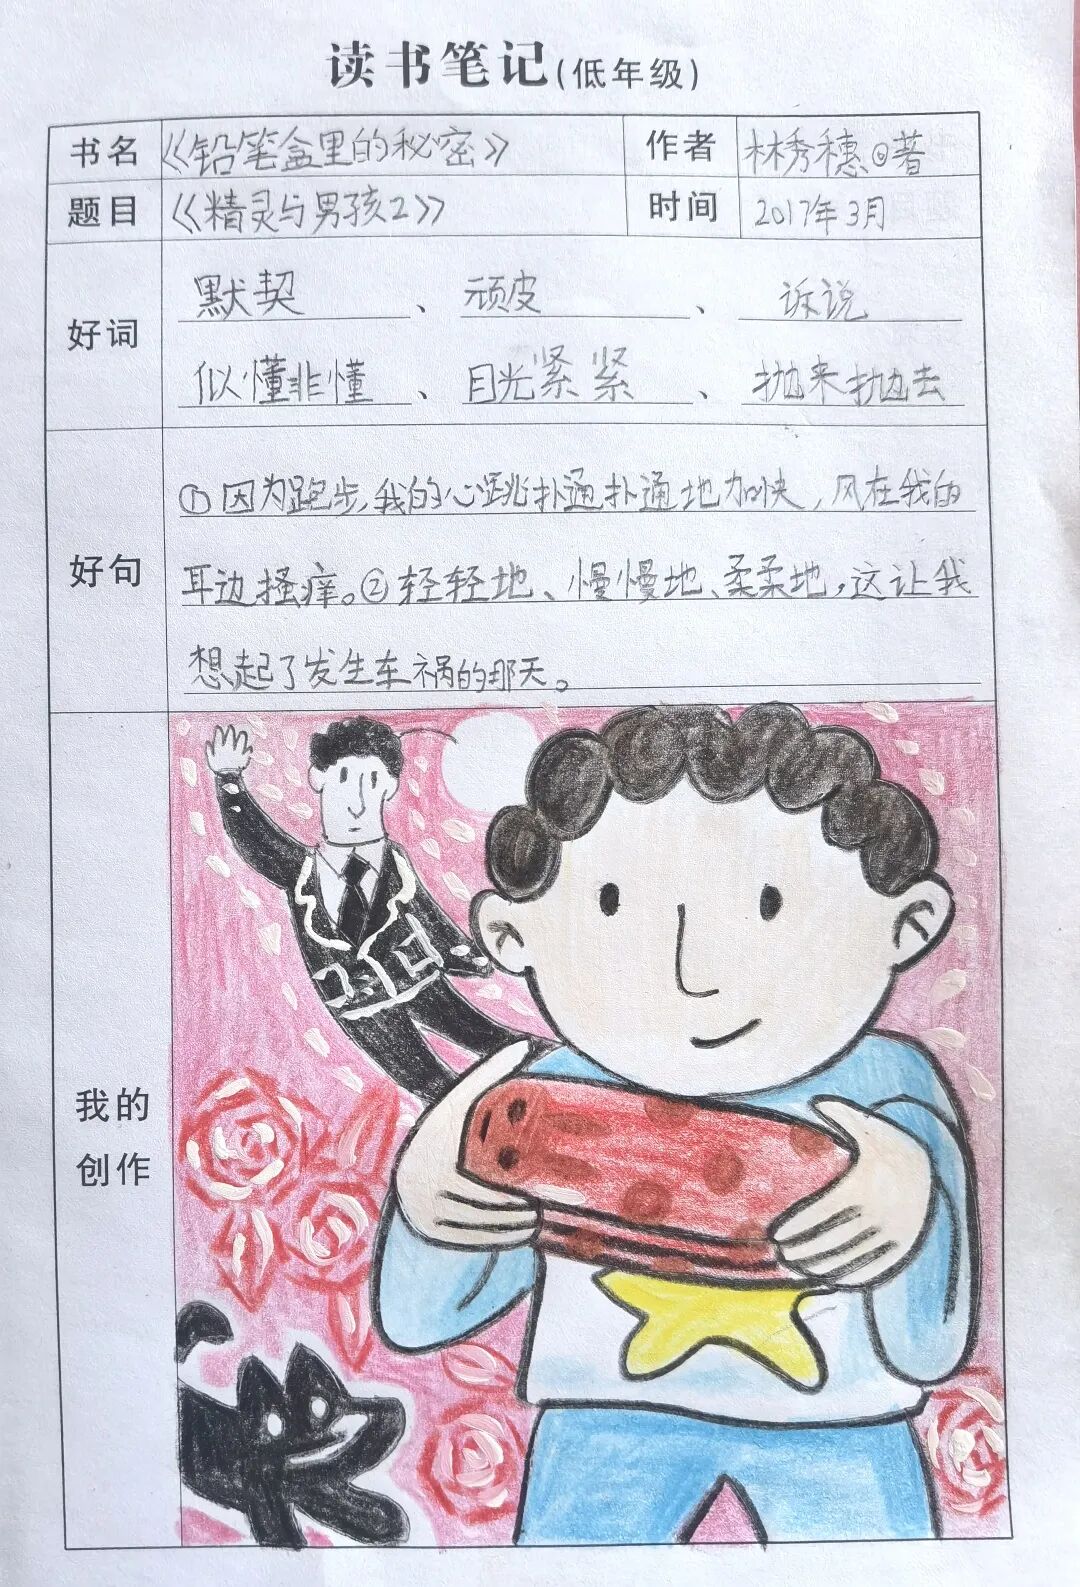 读书笔记(低年级)
书名 《铅笔盒里的秘密》 作者 林秀穗◎著
题目 《精灵与男孩2》 时间 2017年3月
好词 默契、顽皮、诉说
似懂非懂、目光紧紧、抛来抛去
好句 ①因为跑步,我的心跳扑通扑通地加快,风在我的
耳边搔痒。②轻轻地、慢慢地、柔柔地,这让我
想起了发生车祸的那天。
我的
创作